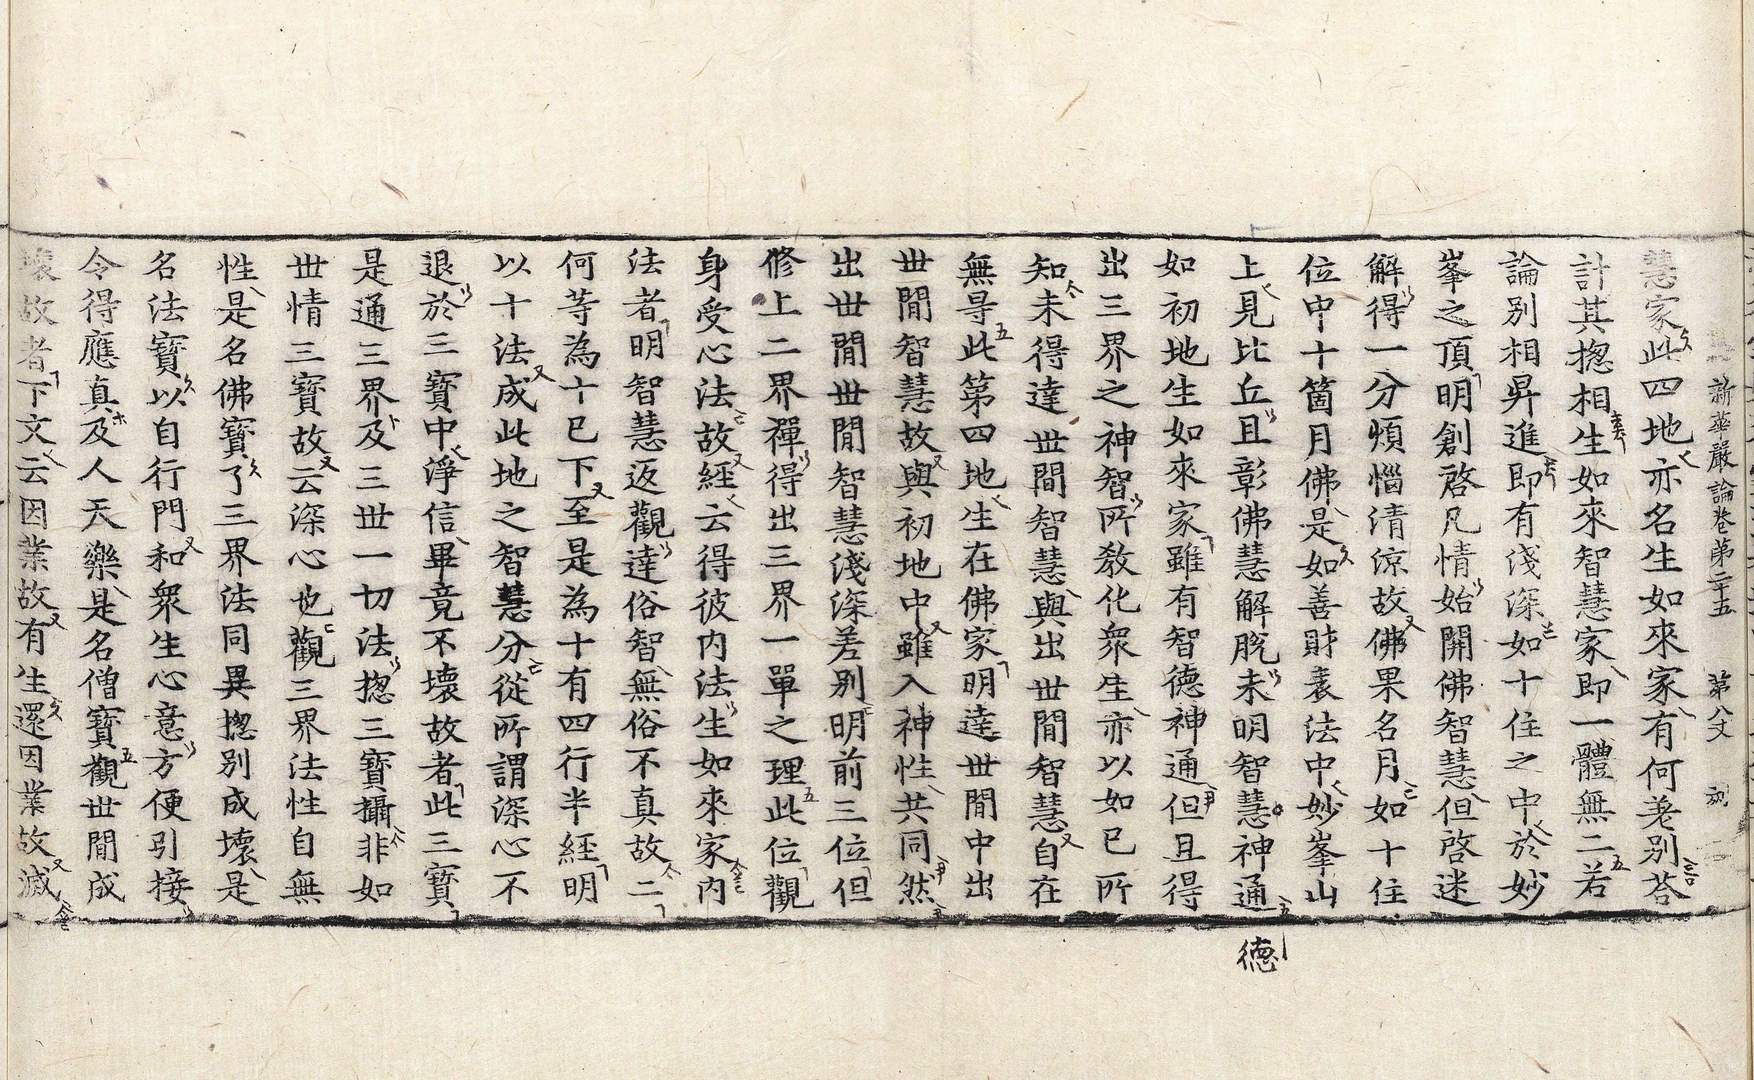 新華嚴論卷第二十五 第八丈
慧家此四地亦名生如來家有何差别荅
計其揔相生如來智慧家即一體無二若
論别相昇進即有淺深如十住之中於妙
峯之頂明創啓凡情始開佛智慧但啓迷
解得一分煩惱清涼故佛果名月如十住
位中十箇月佛是如善財表法中妙峯山
上見比丘且彰佛慧解脫未明智慧神通
德
如初地生如來家雖有智德神通但且得
出三界之神智所教化衆生亦以如已所
知未得達世間智慧與出世間智慧自在
無㝵此第四地生在佛家明達世間中出
世間智慧故與初地中雖入神性共同然
出世間世間智慧淺深差别明前三位但
修上二界禪得出三界一單之理此位觀
身受心法故經云得彼内法生如來家内
法者明智慧返觀達俗智無俗不真故二
何等為十已下至是為十有四行半經明
以十法成此地之智慧分從所謂深心不
退於三寶中淨信畢竟不壞故者此三寶
是通三界及三世一切法揔三寶攝非如
世情三寶故云深心也觀三界法性自無
性是名佛寶了三界法同異揔别成壞是
名法寶以自行門和衆生心意方便引接
令得應真及人天樂是名僧寶觀世間成
壞故者下文云因業故有生還因業故滅